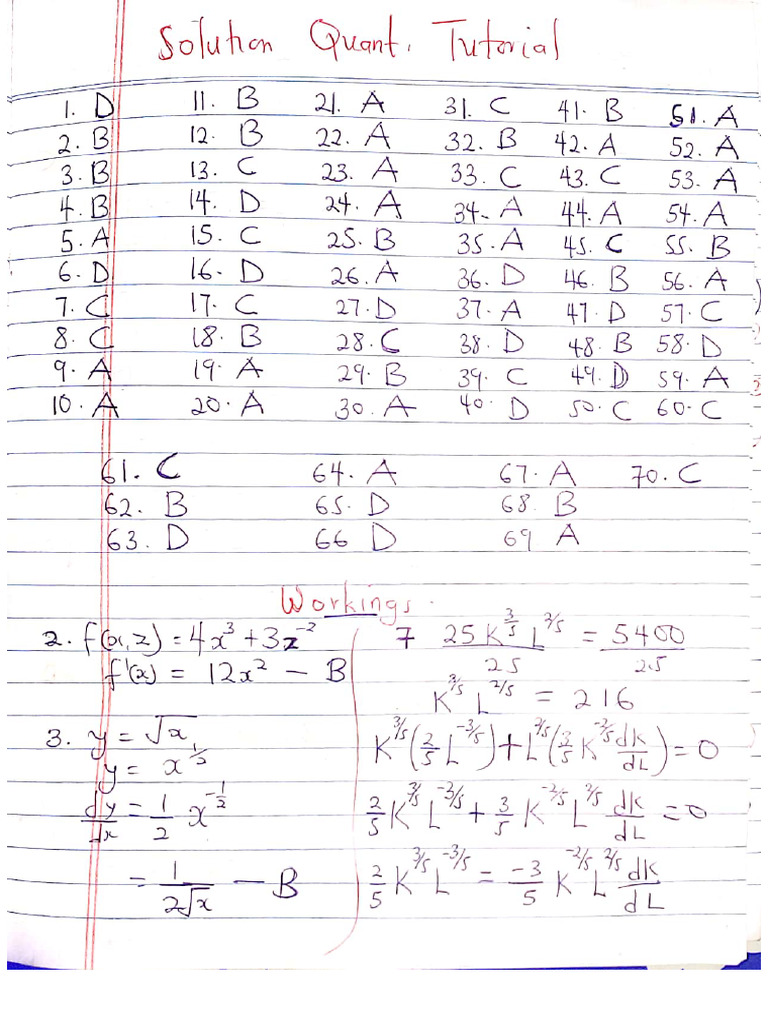 Solution Quant. Tutorial
1. D 11. B 21. A 31. C 41. B 51. A
2. B 12. B 22. A 32. B 42. A 52. A
3. B 13. C 23. A 33. C 43. C 53. A
4. B 14. D 24. A 34. A 44. A 54. A
5. A 15. C 25. B 35. A 45. C 55. B
6. D 16. D 26. A 36. D 46. B 56. A
7. C 17. C 27. D 37. A 47. D 57. C
8. C 18. B 28. C 38. D 48. B 58. D
9. A 19. A 29. B 39. C 49. D 59. A
10. A 20. A 30. A 40. D 50. C 60. C
61. C 64. A 67. A 70. C
62. B 65. D 68. B
63. D 66 D 69 A
Workings.
2. f(x,z) = 4x³ + 3z⁻²
f'(x) = 12x² − B
3. y = √x
y = x^1/2
dy/dx = 1/2 x^-1/2
= 1/2√x − B
7 25K^3/5 L^2/5 / 25 = 5400 / 25
K^3/5 L^2/5 = 216
K^3/5 (2/5 L^-3/5) + L^2/5 (3/5 K^-2/5 dK/dL) = 0
2/5 K^3/5 L^-3/5 + 3/5 K^-2/5 L^2/5 dK/dL = 0
2/5 K^3/5 L^-3/5 = -3/5 K^-2/5 L^2/5 dK/dL